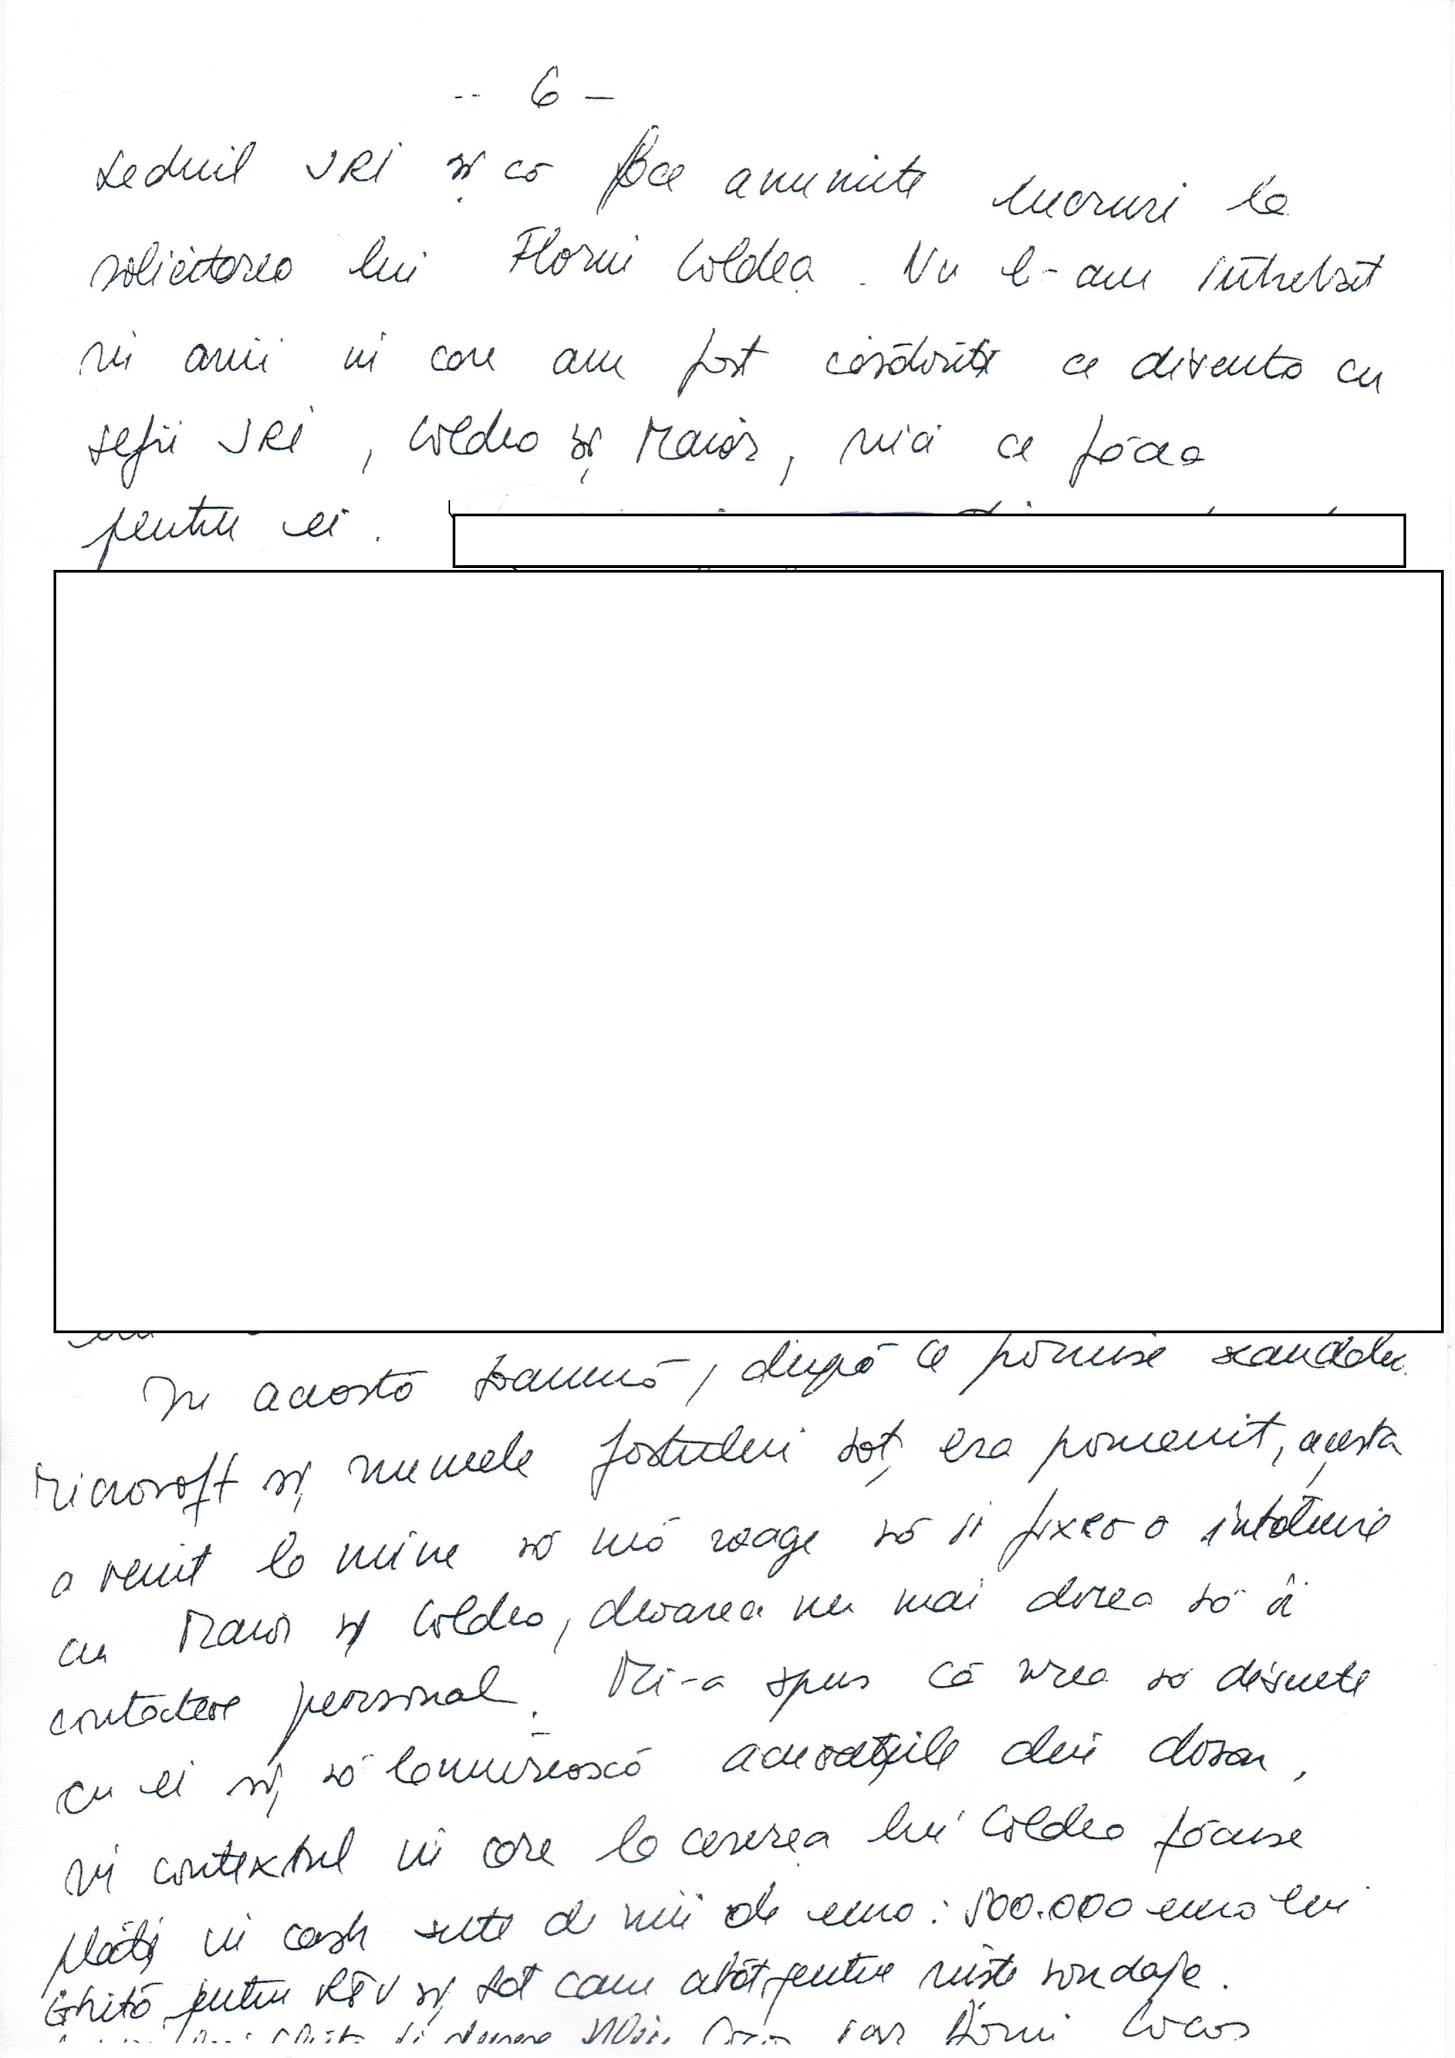 - 6 -
sediul SRI și că face anumite lucruri la
solicitarea lui Florin Coldea. Nu l-am întrebat
în anii în care am fost căsătoriți ce discuta cu
șefii SRI, Coldea și Maior, nici ce făcea
pentru ei.
În această toamnă, după ce pornise scandalul
Microsoft și numele fostului soț era pomenit, acesta
a venit la mine să mă roage să îi fixez o întâlnire
cu Maior și Coldea, deoarece nu mai dorea să îi
contacteze personal. Mi-a spus că vrea să discute
cu ei și să lămurească acuzațiile din dosar,
în contextul în care la cererea lui Coldea făcuse
plăți în cash sute de mii de euro: 500.000 euro lui
Ghiță pentru RTV și tot cam atât pentru niște sondaje.
iar Dorin Cocoș